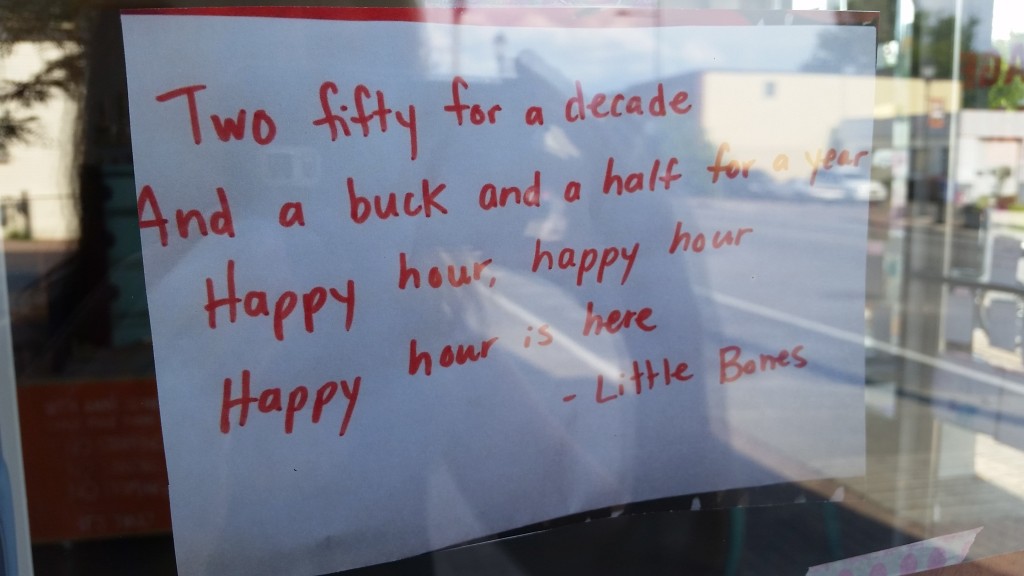 Two fifty for a decade
And a buck and a half for a year
Happy hour, happy hour
Happy hour is here
- Little Bones